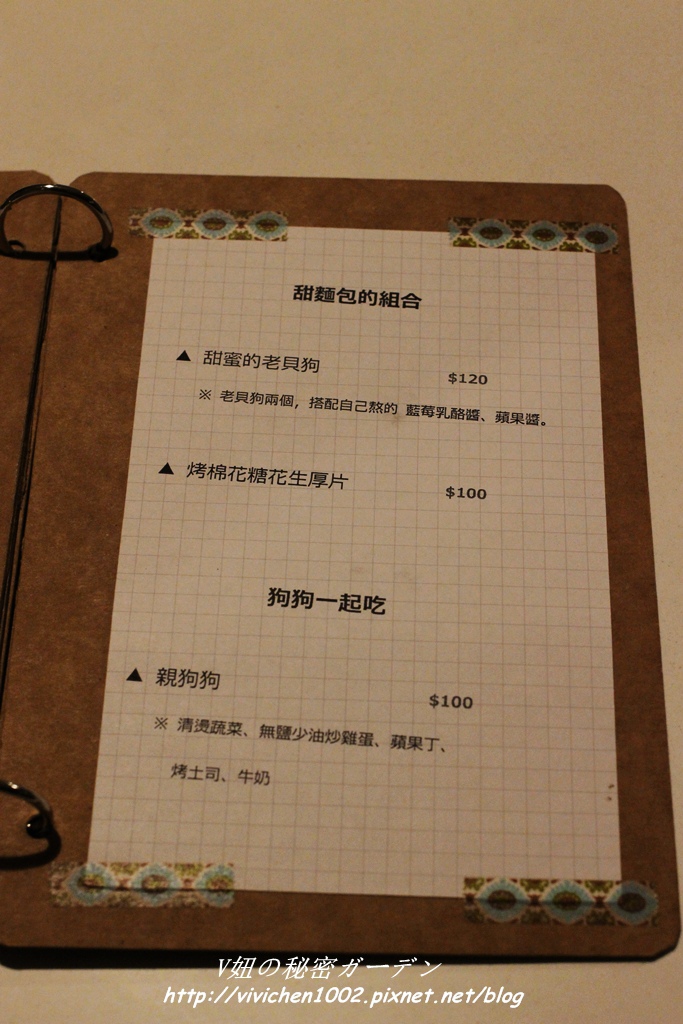 甜麵包的組合
▲ 甜蜜的老貝狗 $120
※ 老貝狗兩個，搭配自己熬的 藍莓乳酪醬、蘋果醬。
▲ 烤棉花糖花生厚片 $100
狗狗一起吃
▲ 親狗狗 $100
※ 清燙蔬菜、無鹽少油炒雞蛋、蘋果丁、
烤土司、牛奶
V妞の秘密ガーデン
http://vivichen1002.pixnet.net/blog